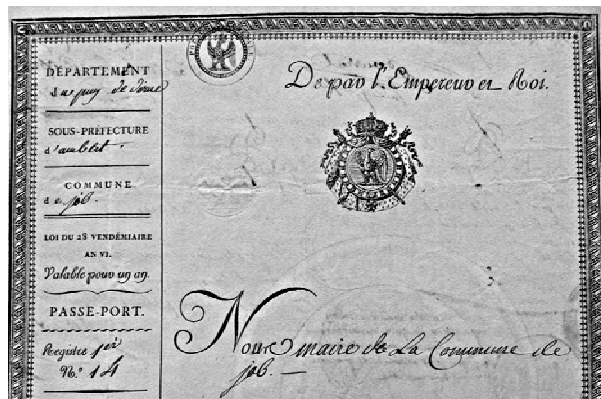 DÉPARTEMENT
du puy de dome
SOUS-PRÉFECTURE
d'amblet.
COMMUNE
de job.
LOI DU 28 VENDÉMIAIRE
AN VI.
Valable pour un an.
PASSE-PORT.
Registre 1er
N.° 14
De par l'Empereur et Roi.
Nous maire de La Commune de
job. —